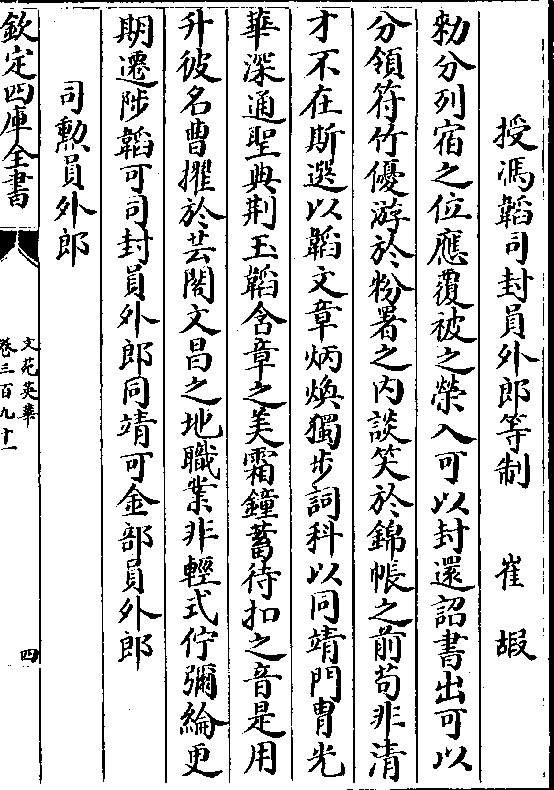 授馮韜司封員外郎等制　崔嘏
勑分列宿之位應覆被之榮入可以封還詔書出可以
分領符竹優游於粉署之内談笑於錦帳之前苟非清
才不在斯選以韜文章炳煥獨步詞科以同靖門胄光
華深通聖典荆玉韜含章之美霜鐘蓄待扣之音是用
升彼名曹擢於芸閣文昌之地職業非輕式佇彌綸更
期遷陟韜可司封員外郎同靖可金部員外郎
司勲員外郎
欽定四庫全書
文苑英華
卷三百九十一
四